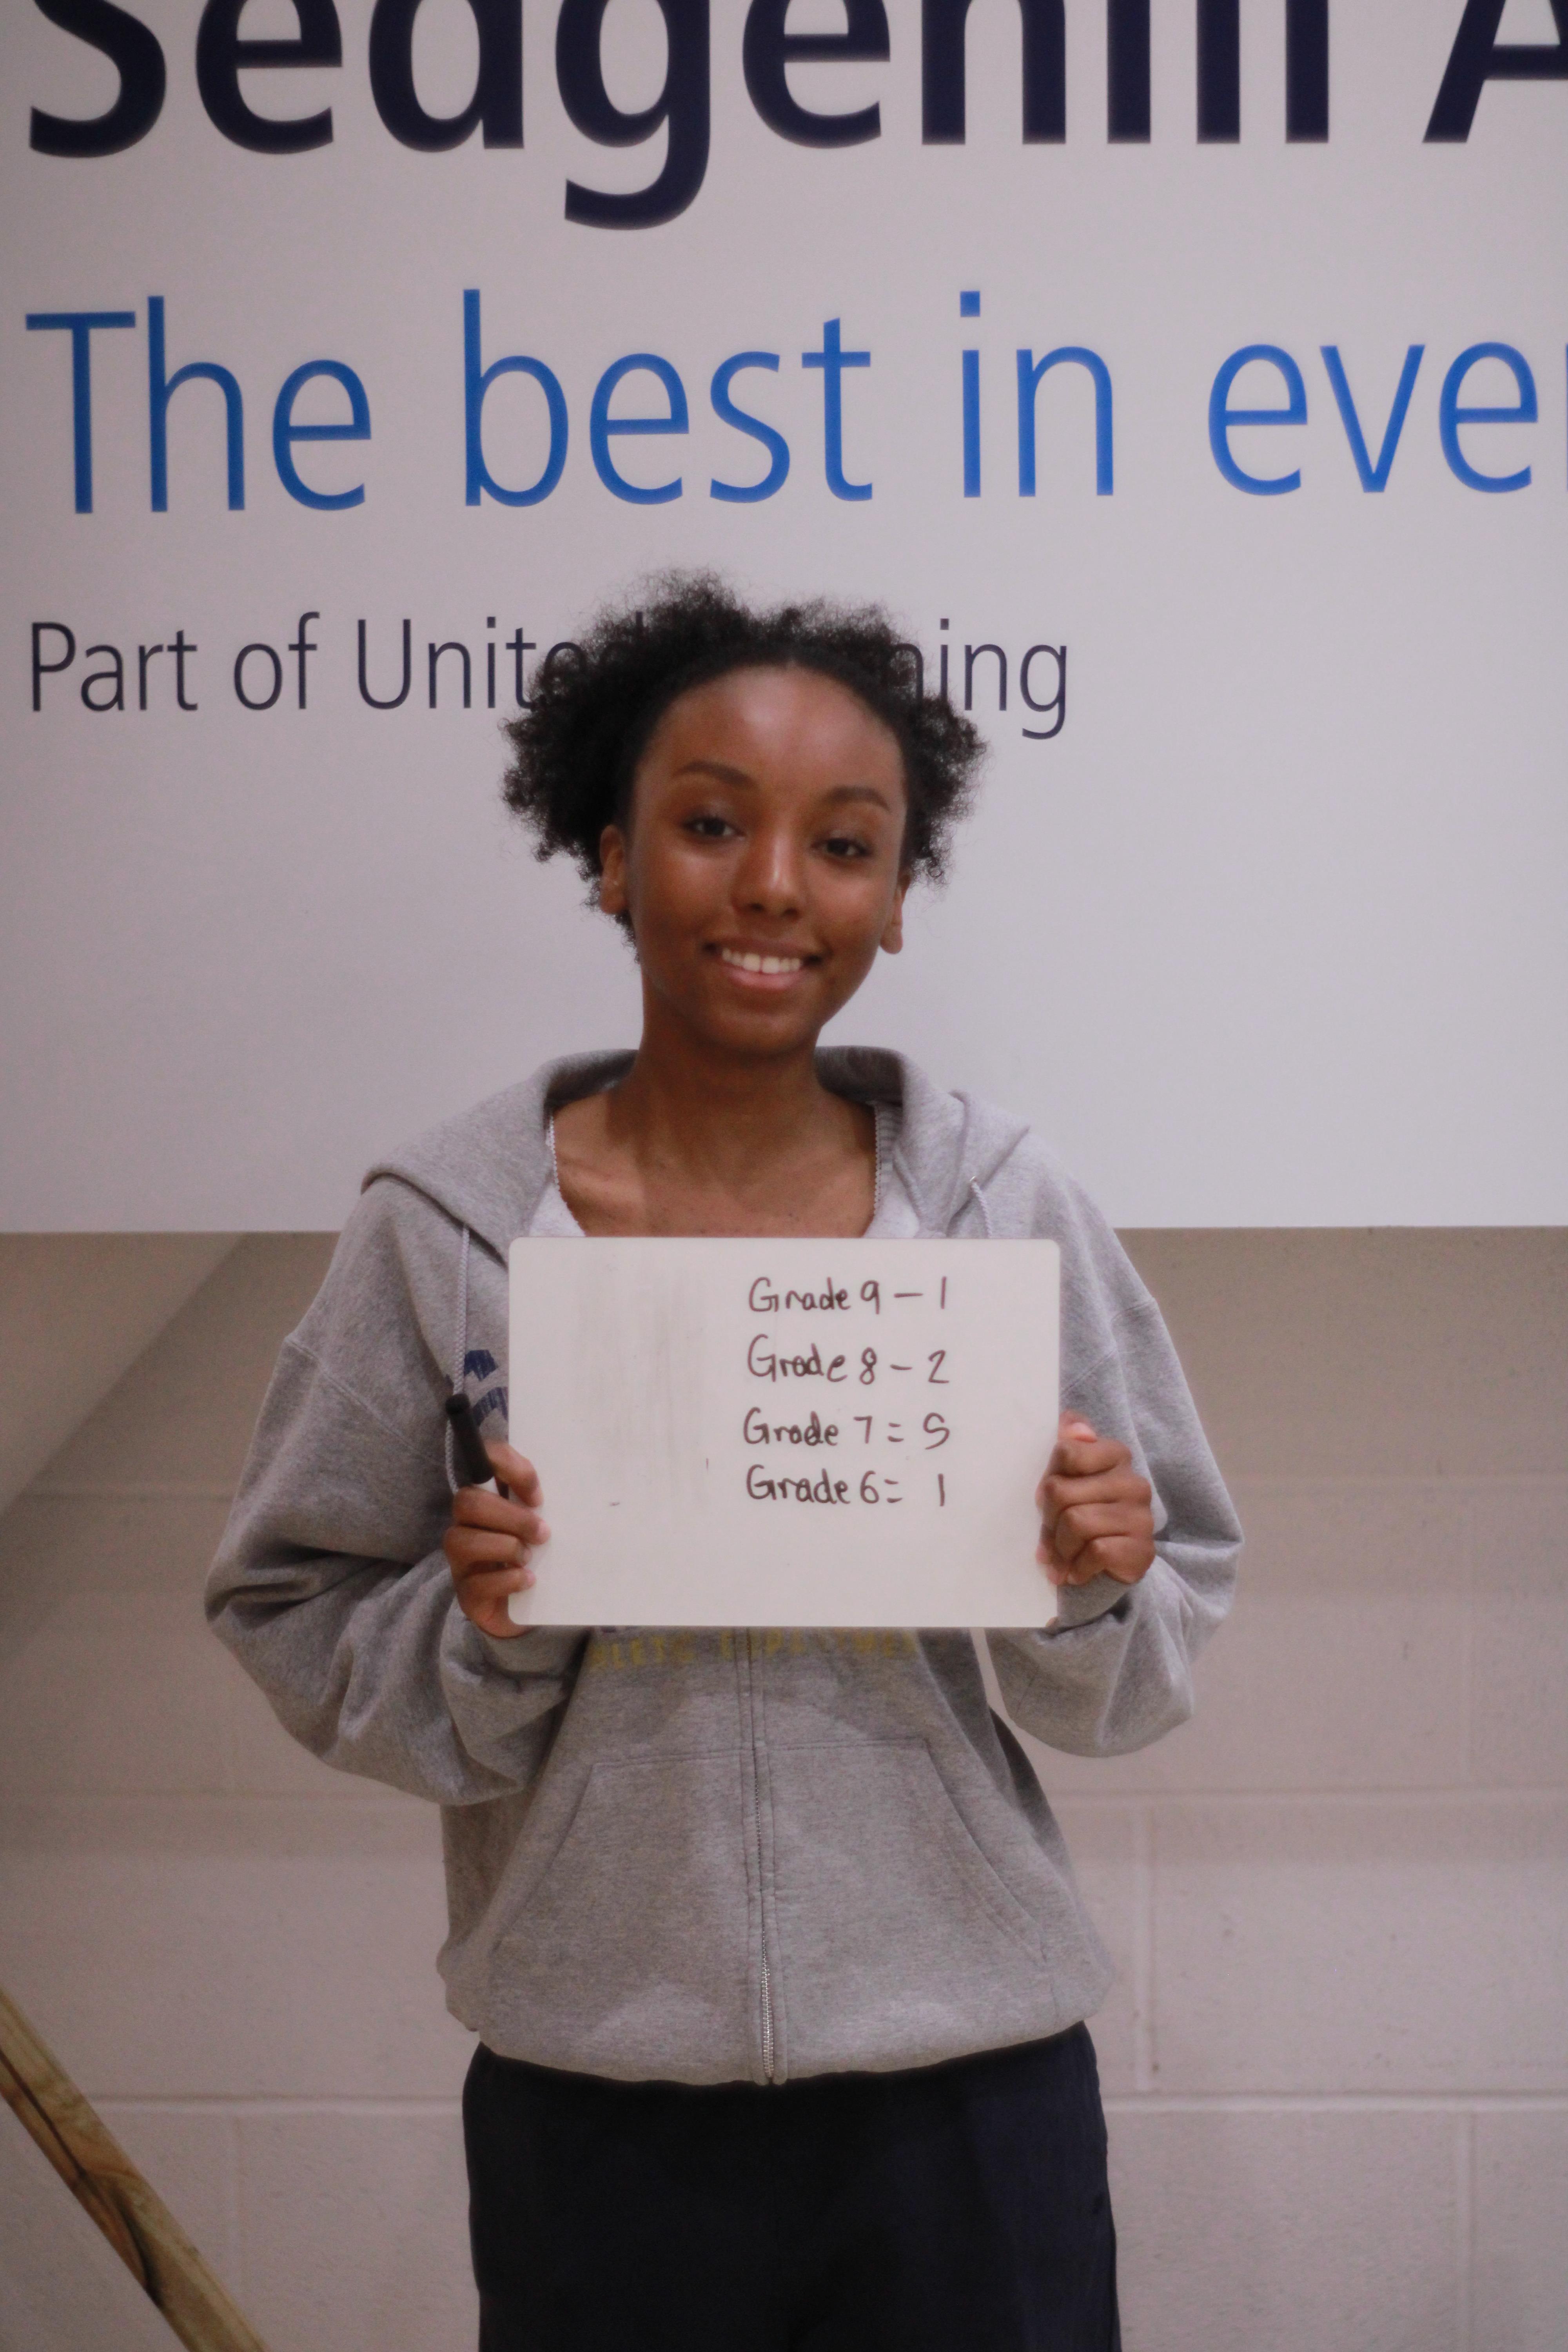 Sedgehill A
The best in ever
Part of United ning
Grade 9 – 1
Grade 8 – 2
Grade 7 = 5
Grade 6 = 1